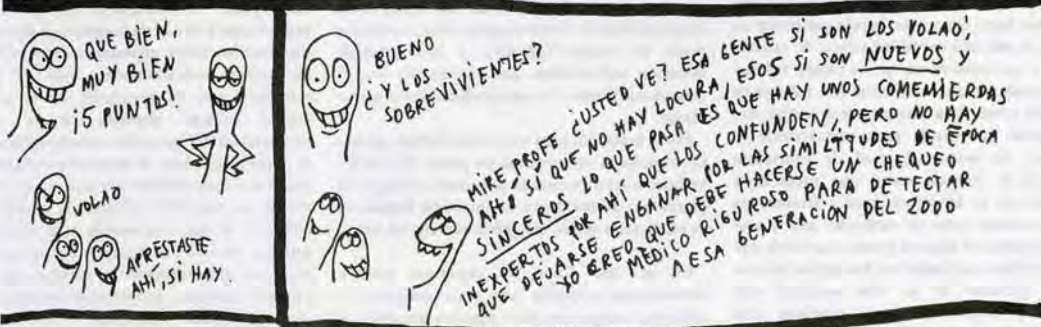 QUE BIEN,
MUY BIEN
¡5 PUNTOS!
VOLAO
APRETASTE
AHÍ, SI HAY.
BUENO
¿Y LOS
SOBREVIVIENTES?
MIRE PROFE ¿USTED VE? ESA GENTE SI SON LOS VOLAO',
AHÍ SÍ QUE NO HAY LOCURA, ESOS SI SON NUEVOS Y
SINCEROS LO QUE PASA ES QUE HAY UNOS COMEMIERDAS
INEXPERTOS POR AHÍ QUE LOS CONFUNDEN, PERO NO HAY
QUE DEJARSE ENGAÑAR POR LAS SIMILITUDES DE ÉPOCA
YO CREO QUE DEBE HACERSE UN CHEQUEO
MEDICO RIGUROSO PARA DETECTAR
A ESA GENERACIÓN DEL 2000